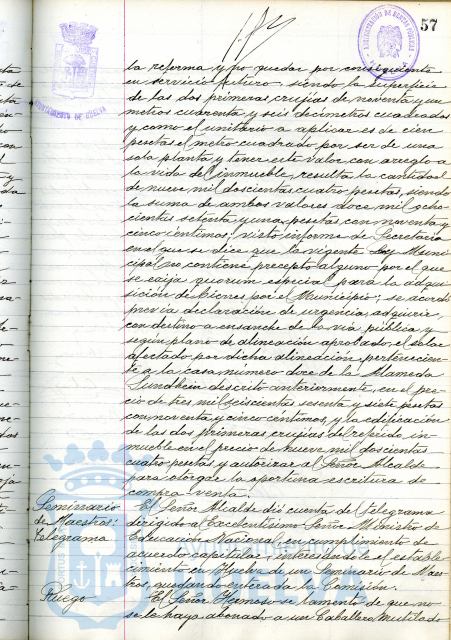 57
AYUNTAMIENTO DE HUELVA
la reforma y no quedar por consiguiente
en servicio futuro, siendo la superficie
de las dos primeras crujías de noventa y un
metros cuarenta y seis decímetros cuadrados
y como el unitario a aplicar es de cien
pesetas el metro cuadrado por ser de una
sola planta y tener este valor con arreglo a
la vida del inmueble, resulta la cantidad
de nueve mil doscientas cuatro pesetas, siendo
la suma de ambos valores doce mil ocho-
cientas setenta y una pesetas con noventa y
cinco céntimos; visto informe de Secretaría
en el que se dice que la vigente Ley Muni-
cipal no contiene precepto alguno por el que
se exija quorum especial para la adqui-
sición de bienes por el Municipio; se acordó
previa declaración de urgencia adquirir,
con destino a ensanche de la vía pública y
según plano de alineación aprobado, el solar
afectado por dicha alineación perteneciente
a la casa número doce de la Alameda
Sundheim descrito anteriormente, en el pre-
cio de tres mil seiscientas sesenta y siete pesetas
con noventa y cinco céntimos, y la edificación
de las dos primeras crujías del referido in-
mueble en el precio de nueve mil doscientas
cuatro pesetas y autorizar al Señor Alcalde
para otorgar la oportuna escritura de
compra venta.
Seminario de Maestros: telegrama
El Señor Alcalde dió cuenta del telegrama
dirigido al Excelentísimo Señor Ministro de
Educación Nacional, en cumplimiento de
acuerdo capitular, interesándole el estable-
cimiento en Huelva de un Seminario de Maes-
tros, quedando enterada la Comisión.
Ruego
El Señor Hermoso se lamentó de que no
se le haya abonado a un Caballero Mutilado